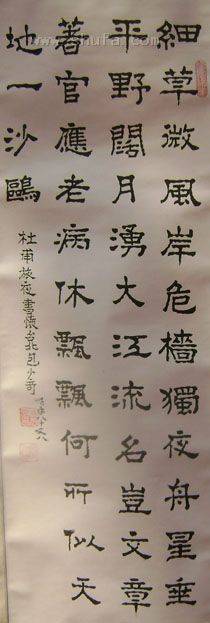 細草微風岸危檣獨夜舟星垂
平野闊月湧大江流名豈文章
著官應老病休飄飄何所似天
地一沙鷗
杜甫旅夜書懷台北包少奇
八十又八